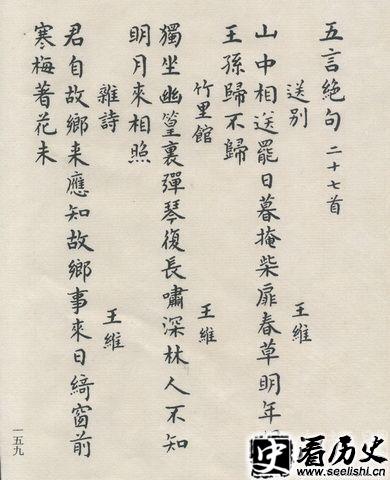 五言絶句 二十七首
送别 王維
山中相送罷日暮掩柴扉春草明年
王孫歸不歸
竹里館 王維
獨坐幽篁裏彈琴復長嘯深林人不知
明月來相照
雜詩 王維
君自故鄉来應知故鄉事來日綺窗前
寒梅著花未
一五九
史看历史
www.seelishi.cn